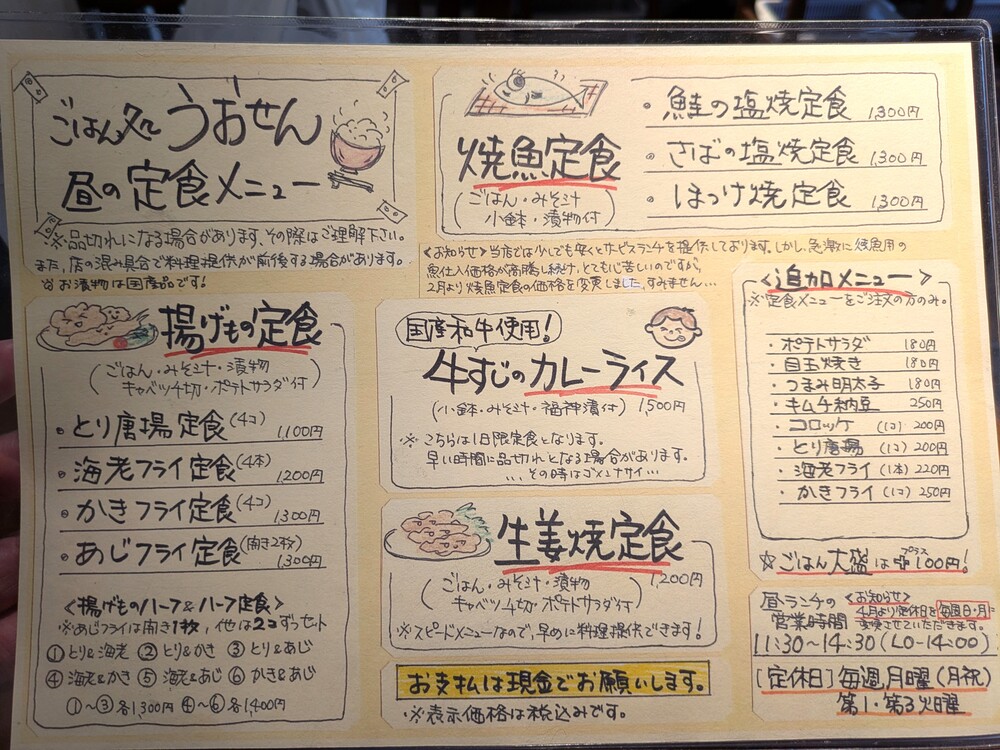 ごはん処 うおせん
昼の定食メニュー
※品切れになる場合があります、その際はご理解下さい。
また、店の混み具合で料理提供が前後する場合があります。
※お漬物は国産品です!
焼魚定食
(ごはん・みそ汁
小鉢・漬物付)
・鮭の塩焼定食 1,300円
・さばの塩焼定食 1,300円
・ほっけ焼定食 1,300円
<お知らせ>当店では少しでも安くとサービスランチを提供しております。しかし、急激に焼魚用の
魚仕入価格が高騰し続け、とても心苦しいのですが、
2月より焼魚定食の価格を変更しました。すみません…
揚げもの定食
(ごはん・みそ汁・漬物
キャベツ千切・ポテトサラダ付)
・とり唐揚定食(4コ) 1,100円
・海老フライ定食(4本) 1,200円
・かきフライ定食(4コ) 1,300円
・あじフライ定食(開き2枚) 1,300円
<揚げものハーフ&ハーフ定食>
※あじフライは開き1枚、他は2コずつセット
①とり&海老 ②とり&かき ③とり&あじ
④海老&かき ⑤海老&あじ ⑥かき&あじ
①〜③各1,300円 ④〜⑥各1,400円
国産和牛使用!
牛すじのカレーライス
(小鉢・みそ汁・福神漬付) 1,500円
※こちらは1日限定食となります。
早い時間に品切れとなる場合があります。
…その時はゴメンナサイ…
生姜焼定食
1,200円
(ごはん・みそ汁・漬物
キャベツ千切・ポテトサラダ付)
※スピードメニューなので、早めに料理提供できます!
お支払は現金でお願いします。
・※表示価格は税込みです。
<追加メニュー>
※定食メニューをご注文の方のみ。
・ポテトサラダ 180円
・目玉焼き 180円
・つまみ明太子 180円
・キムチ納豆 250円
・コロッケ (1コ) 200円
・とり唐揚 (1コ) 200円
・海老フライ (1本) 220円
・かきフライ (1コ) 250円
☆ごはん大盛は プラス 100円!
昼ランチの
営業時間
<お知らせ>
4月より定休日を毎週日・月に
変更させていただきます。
11:30〜14:30(LO-14:00)
[定休日]毎週月曜(月祝)
第1・第3火曜